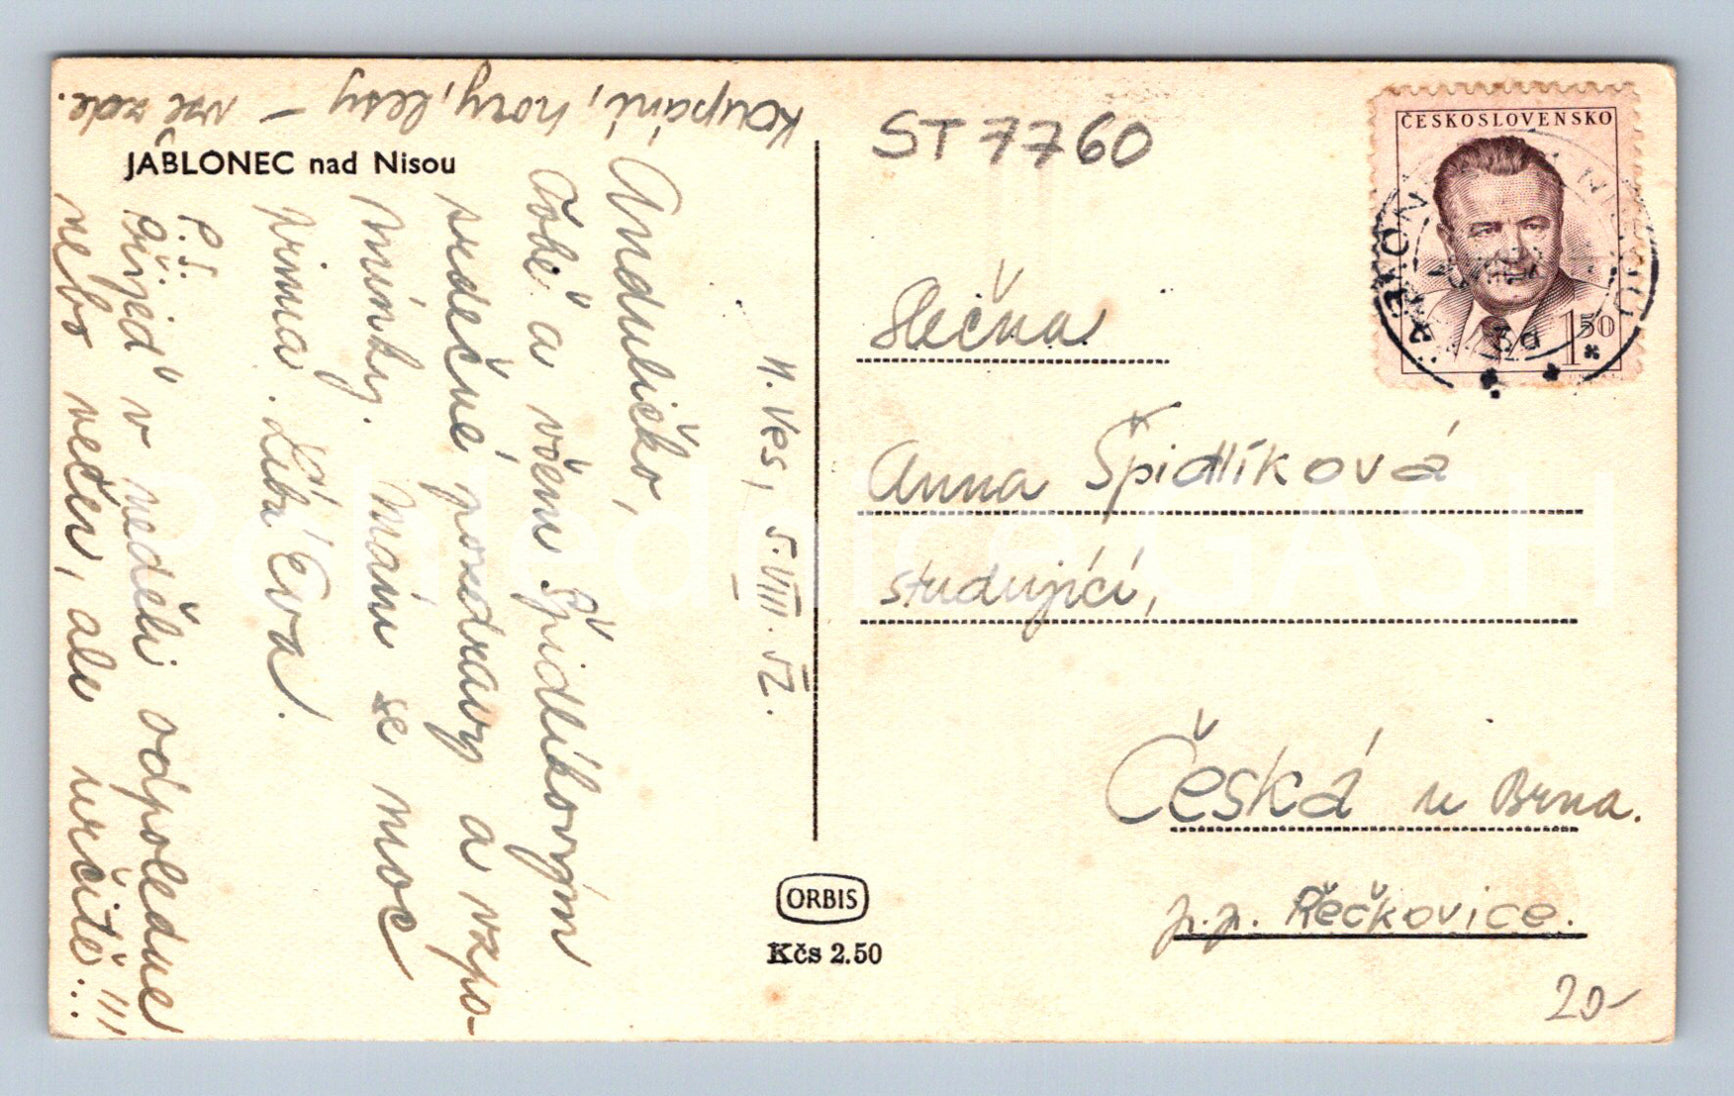 Koupání, hory, lesy – vše zde.
JABLONEC nad Nisou
N. Ves, 5.VIII. 52.
Anduličko,
Tobě a všem Špidlíkovým
srdečné pozdravy a vzpo-
mínky. Mám se moc
prima. Líbá Eva.
P.S.
Přijeď v neděli odpoledne
nebo večer, ale určitě...!!!
ST 7760
ČESKOSLOVENSKO
1 50
Slečna
Anna Špidlíková
studující,
Česká u Brna.
p.p. Řečkovice.
20-
ORBIS
Kčs 2.50